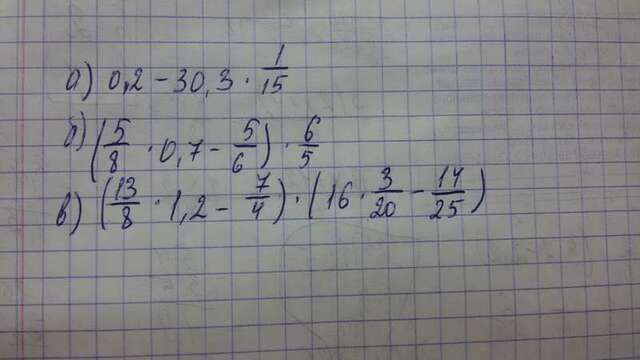 а) 0,2 - 30,3 · 1/15
б) (5/8 · 0,7 - 5/6) · 6/5
в) (13/8 · 1,2 - 7/4) · (16 · 3/20 - 14/25)